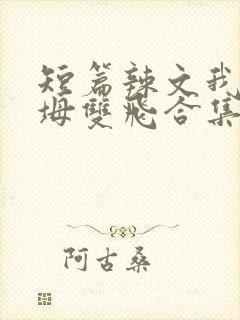 短篇辣文我
坶雙飛合集
阿古桑